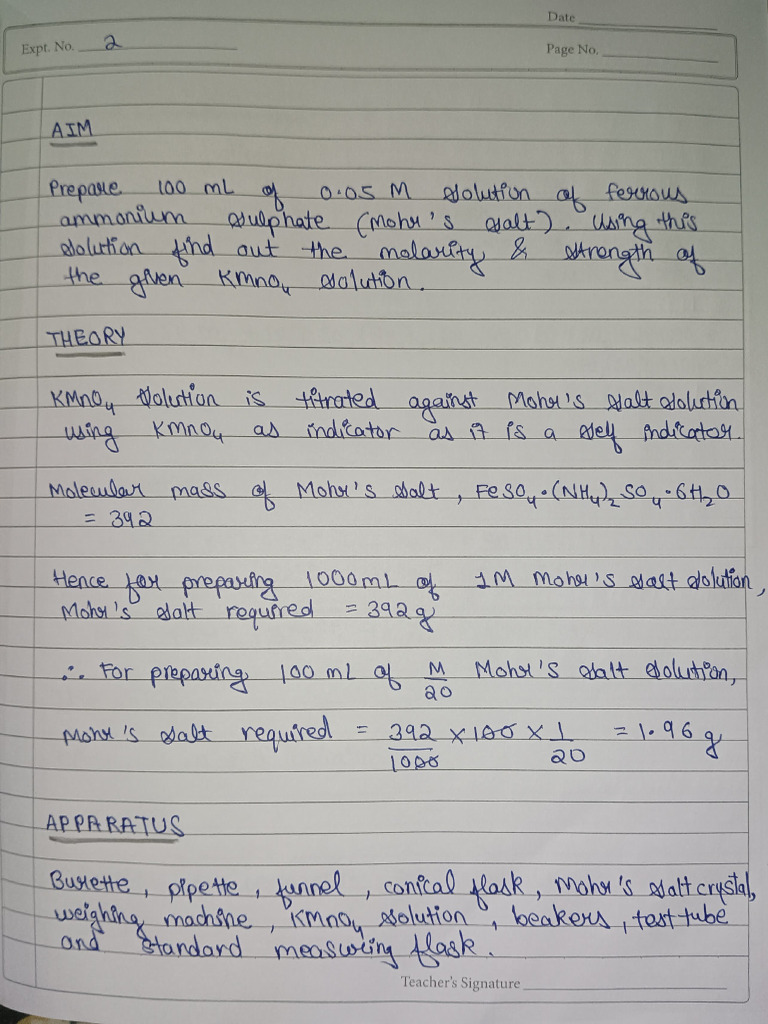 Date
Expt. No. 2
Page No.
AIM
Prepare 100 mL of 0.05 M solution of ferrous
ammonium sulphate (Mohr's salt). Using this
solution find out the molarity & strength of
the given KMnO₄ solution.
THEORY
KMnO₄ solution is titrated against Mohr's salt solution
using KMnO₄ as indicator as it is a self indicator.
Molecular mass of Mohr's salt, FeSO₄·(NH₄)₂SO₄·6H₂O
= 392
Hence for preparing 1000mL of 1M Mohr's salt solution,
Mohr's salt required = 392g
∴ For preparing 100 mL of M/20 Mohr's salt solution,
Mohr's salt required = 392/1000 × 100 × 1/20 = 1.96 g
APPARATUS
Burette, pipette, funnel, conical flask, Mohr's salt crystal,
weighing machine, KMnO₄ solution, beakers, test tube
and standard measuring flask.
Teacher's Signature